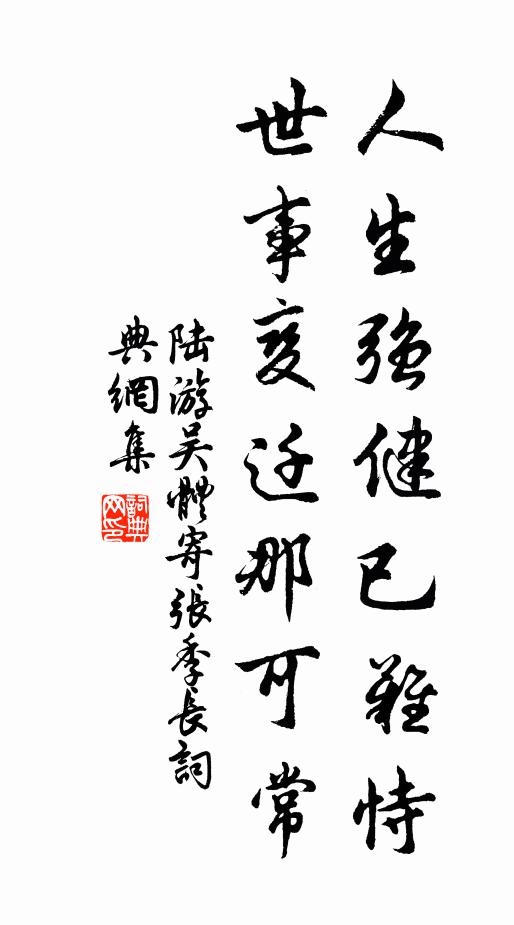 人生強健已難恃
世事变迁那可常
陸游吴體寄張季長詞
典網集
詞典網印